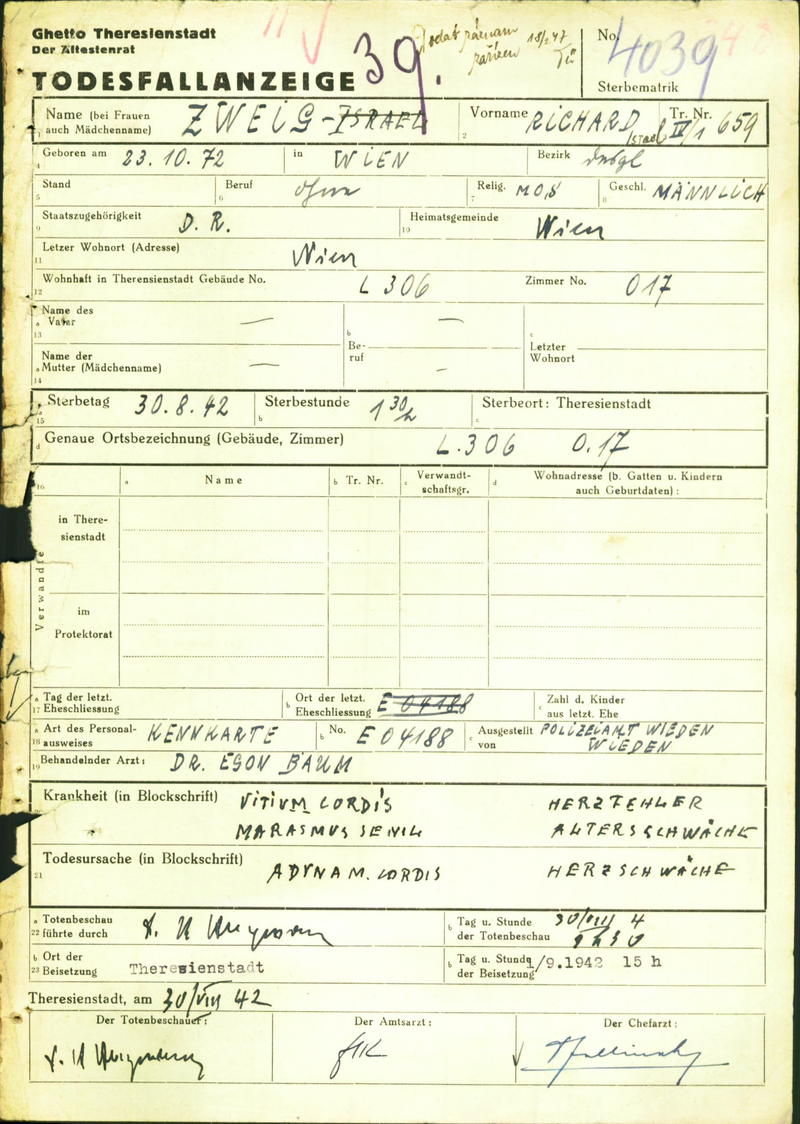 Ghetto Theresienstadt
Der Ältestenrat
TODESFALLANZEIGE
39.
18/2 47
No. 4039
Sterbematrik
Name (bei Frauen auch Mädchenname) ZWEIG-ISRAEL Vorname RICHARD Israel Tr. Nr. IV/1 659
Geboren am 23.10.72 in WIEN Bezirk desgl
Stand Beruf ohne Relig. MOS Geschl. MÄNNLICH
Staatszugehörigkeit D.R. Heimatsgemeinde Wien
Letzer Wohnort (Adresse) Wien
Wohnhaft in Theresienstadt Gebäude No. L 306 Zimmer No. 017
Name des Vater — Beruf — Letzter Wohnort
Name der Mutter (Mädchenname) — -
Sterbetag 30.8.42 Sterbestunde 1 30 h Sterbeort: Theresienstadt
Genaue Ortsbezeichnung (Gebäude, Zimmer) L.306 0.17
Name Tr. Nr. Verwandtschaftsgr. Wohnadresse (b. Gatten u. Kindern auch Geburtdaten):
Verwandte
in Theresienstadt
im Protektorat
Tag der letzt. Eheschliessung Ort der letzt. Eheschliessung E 04188 Zahl d. Kinder aus letzt. Ehe
Art des Personalausweises KENNKARTE No. E 04188 Ausgestellt von POLIZEIAMT WIEDEN WIEDEN
Behandelnder Arzt: DR. EGON BAUM
Krankheit (in Blockschrift) VITIUM CORDIS HERZFEHLER
MARASMUS SENIL ALTERSSCHWÄCHE
Todesursache (in Blockschrift) ADYNAM. CORDIS HERZSCHWÄCHE
Totenbeschau führte durch Tag u. Stunde der Totenbeschau 30/VIII 4
Ort der Beisetzung Theresienstadt Tag u. Stunde der Beisetzung 1/9.1942 15 h
Theresienstadt, am 30/VIII 42
Der Totenbeschauer: Der Amtsarzt: Der Chefarzt: